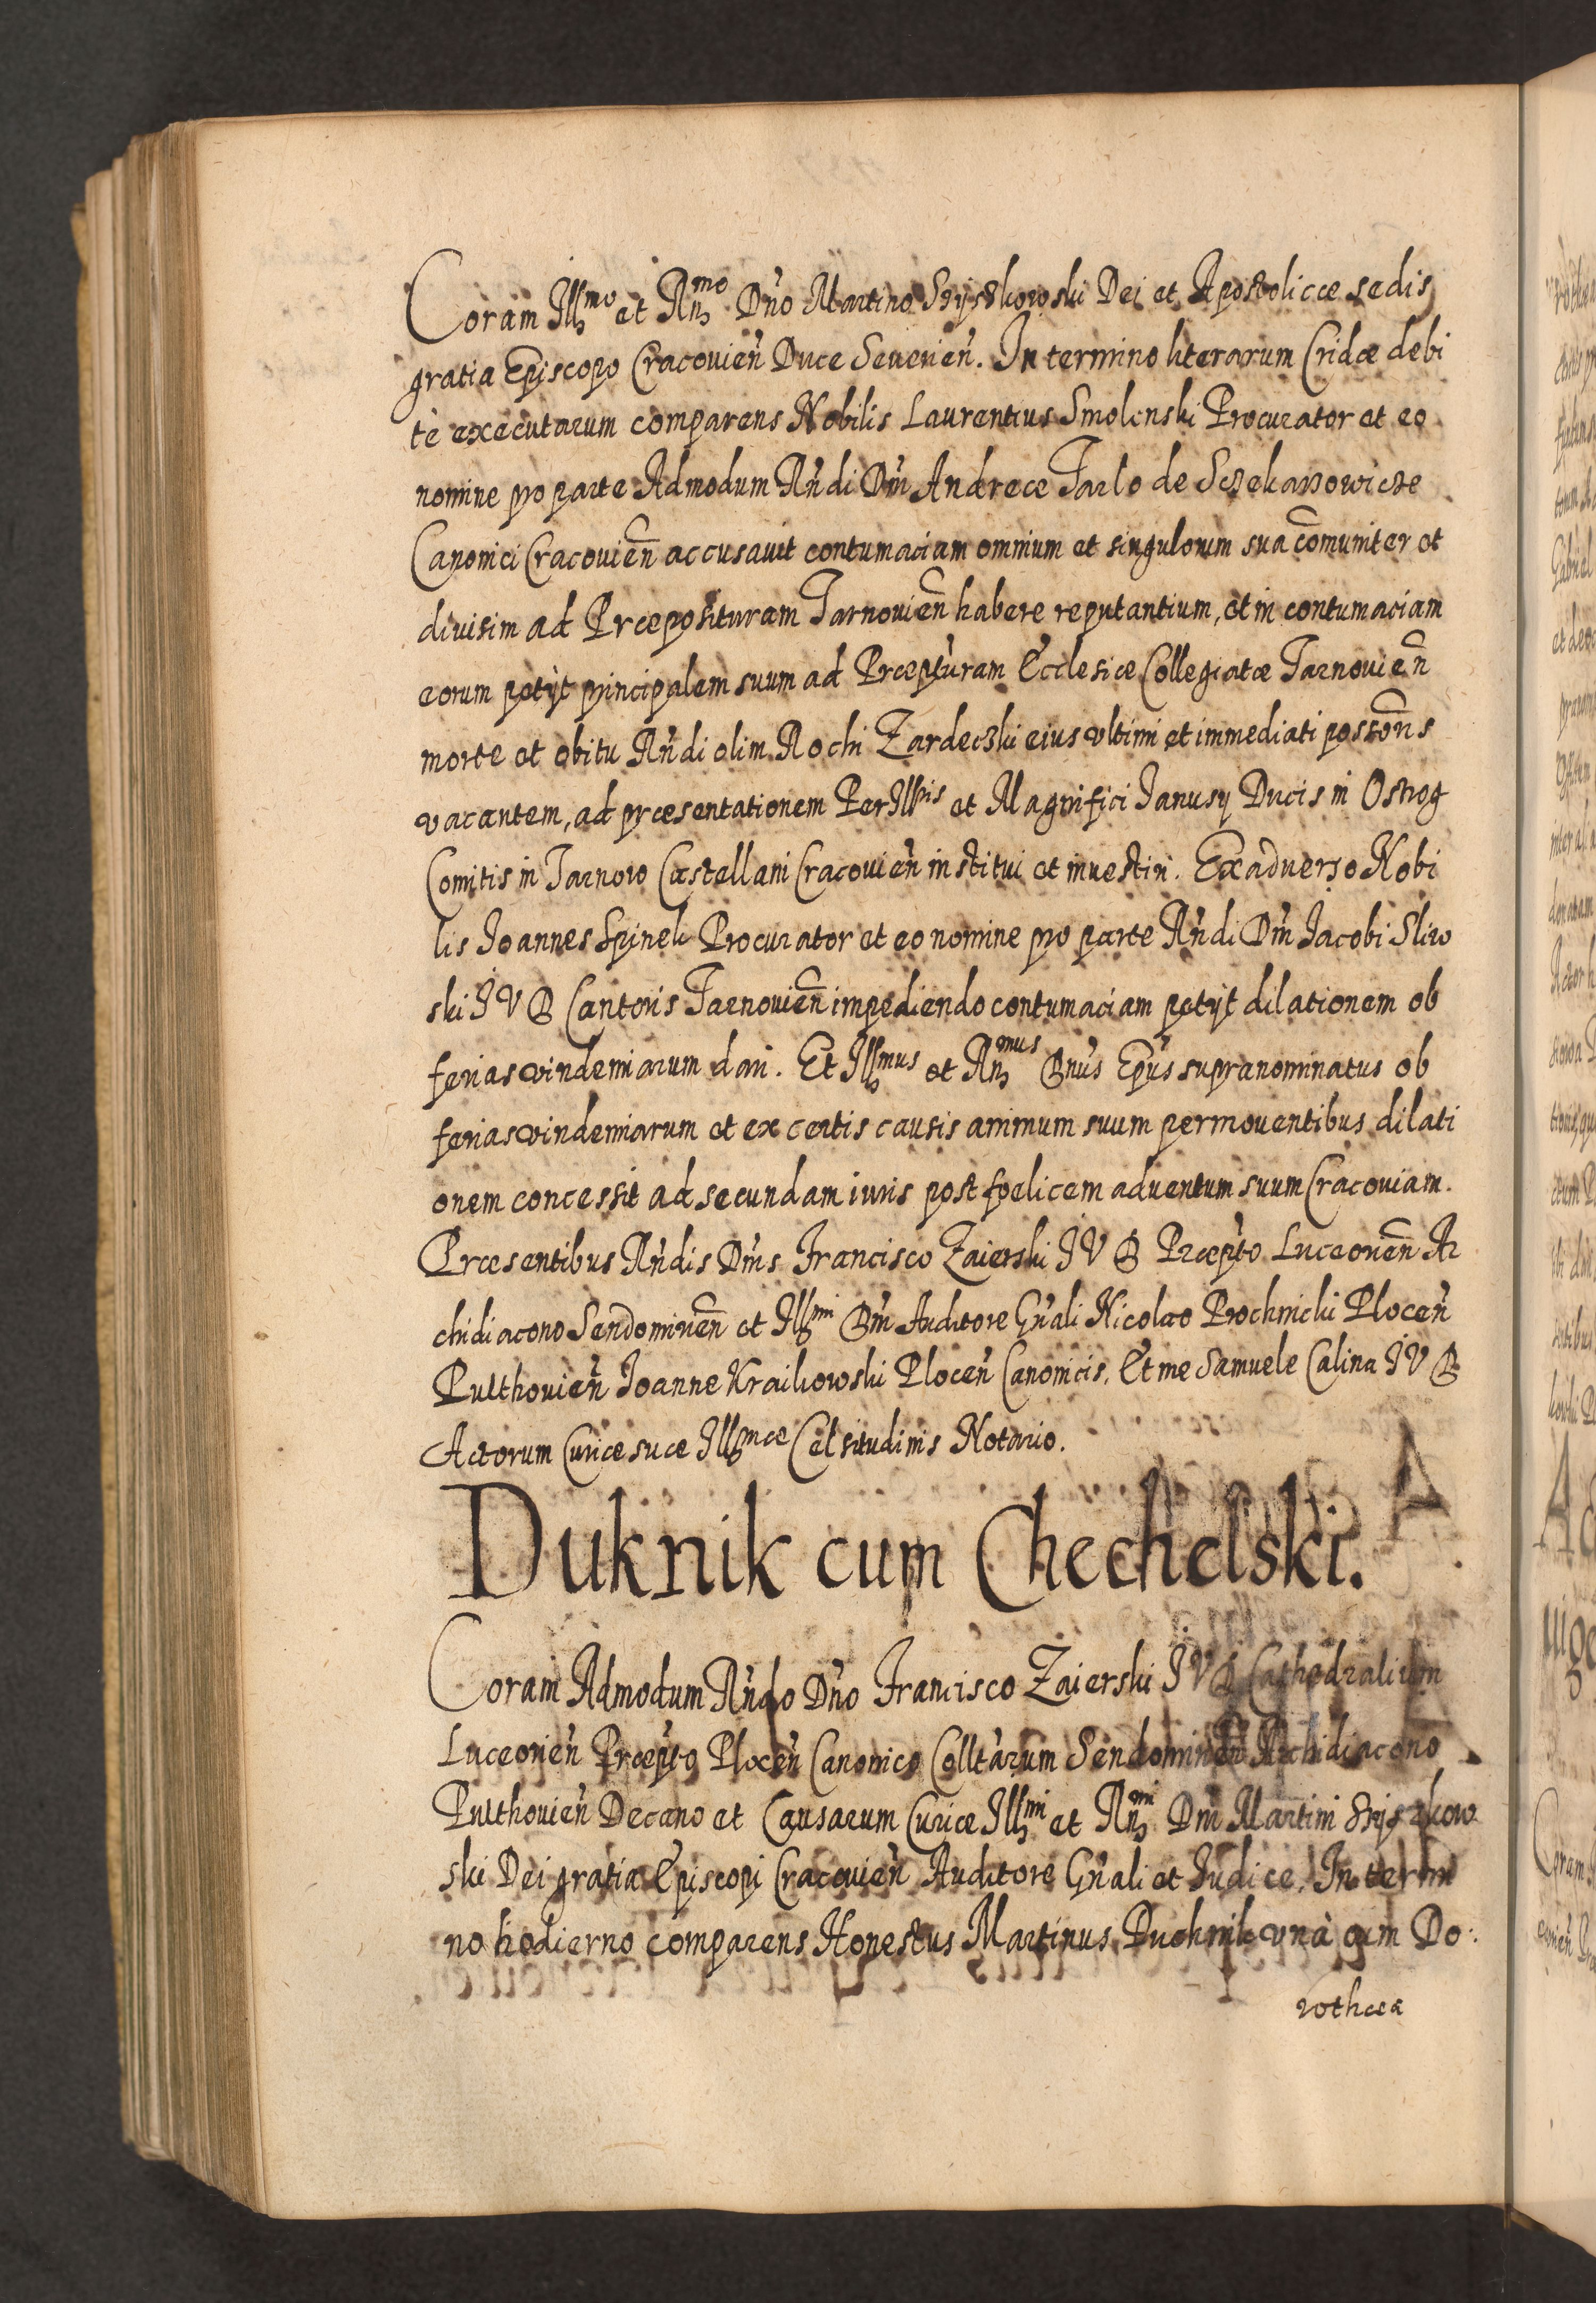 Coram Illmo et Rnmo Dno Martino Szyszkowski Dei et Apostolicæ sedis
gratia Episcopo Cracouien Duce Seuerien. In termino literarum Cridæ debi
tè executarum comparens Nobilis Laurentius Smolenski Procurator et eo
nomine pro parte Admodum Rndi Dni Andreæ Tarlo de Sczekarzowicze
Canonici Cracouien accusauit contumaciam omnium et singulorum sua comuniter et
diuisim ad Præposituram Tarnouien habere reputantium, et in contumaciam
eorum petijt principalem suum ad Præpturam Ecclesiæ Collegiatæ Tarnouien
morte et obitu Rndi olim Rochi Zardeczki eius vltimi et immediati possons
vacantem, ad præsentationem PerIllris et Magnifici Ianusy Ducis in Ostrog
Comitis in Tarnow Castellani Cracouien institui et inuestiri. Ex aduerso Nobi
lis Joannes Spinek Procurator et eo nomine pro parte Rndi Dni Jacobi Sliw
ski I V D Cantoris Tarnouien impediendo contumaciam petijt dilationem ob
ferias vindemiarum dari. Et Illmus et Rnmus Dnus Epus supranominatus ob
ferias vindemiarum et ex certis causis animum suum permouentibus dilati
onem concessit ad secundam iuris post fœlicem aduentum suum Cracouiam.
Præsentibus Rndis Dnis Francisco Zaierski I V D Præpto Luceorien Ar
chidiacono Sendomirien et Illmi Dni Auditore Gnali Nicolao Prochnicki Plocen
Pulthouien Joanne Kraikowski Plocen Canonicis. Et me Samuele Calina I V D
Actorum Curiæ suæ Illmæ Celsitudinis Notario.
Duknik cum Chechelski.
Coram Admodum Rndo Dno Francisco Zaierski I V D Cathedralium
Luceorien Præpto Plocen Canonico Colltarum Sendomirien Archidiacono
Pulthouien Decano et Causarum Curiæ Illmi et Rnmi Dni Martini Szyszkow
ski Dei gratia Episcopi Cracouien Auditore Gnali et Iudice. In termi
no hodierno comparens Honestus Martinus Duchnik vnà cum Do:
rothæa